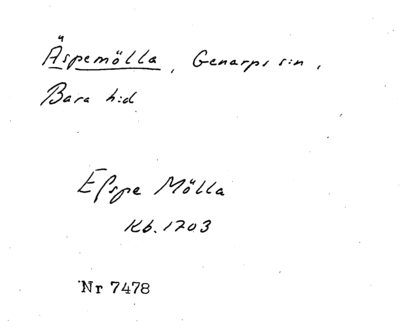 Äspemölla, Genarps s:n,
Bara h:d
Efspe Mölla
Kb. 1703
Nr 7478